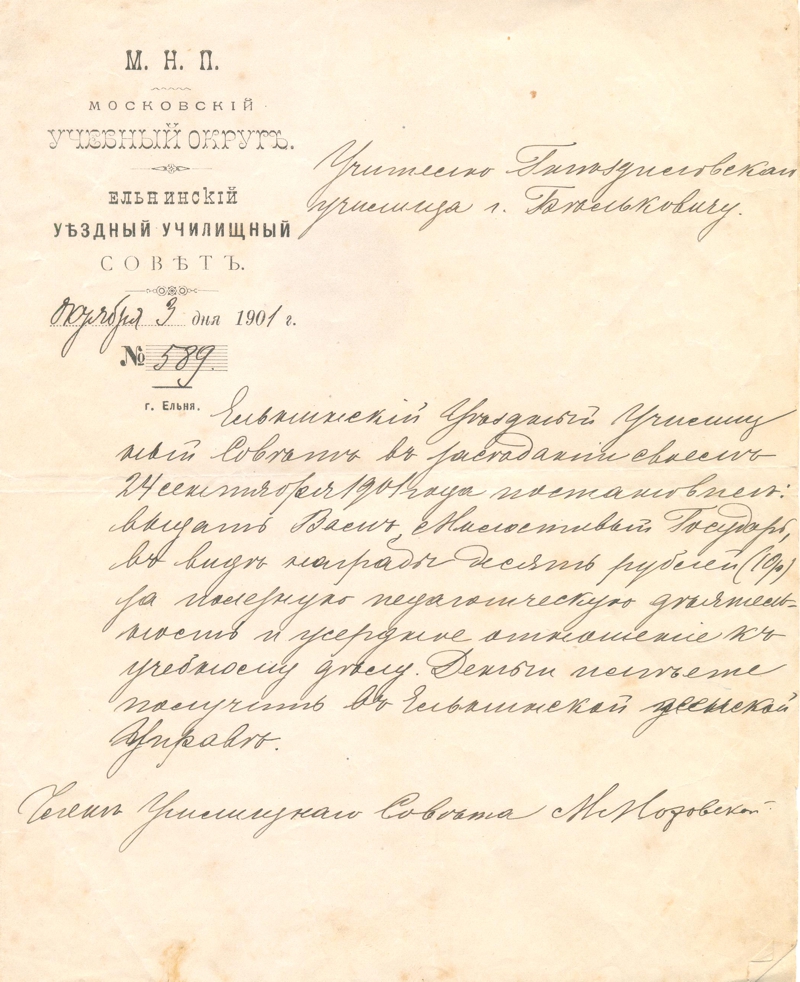 М. Н. П.
МОСКОВСКІЙ
УЧЕБНЫЙ ОКРУГЪ.
ЕЛЬНИНСКІЙ
УѢЗДНЫЙ УЧИЛИЩНЫЙ
СОВѢТЪ.
Октября 3 дня 1901 г.
№ 589.
г. Ельня.
Учителю
училища г. Бюльковичу.
Ельнинскій Уѣздный Училищ
ный Совѣтъ въ засѣданіи своемъ
24 сентября 1901 года постановилъ:
выдать Вамъ, Милостивый Государь,
въ видѣ награды десять рублей (10 р)
за полезную педагогическую дѣятель-
ность и усердное отношеніе къ
учебному дѣлу. Деньги можете
получить въ Ельнинской земской
Управѣ.
Членъ Училищнаго Совѣта М.